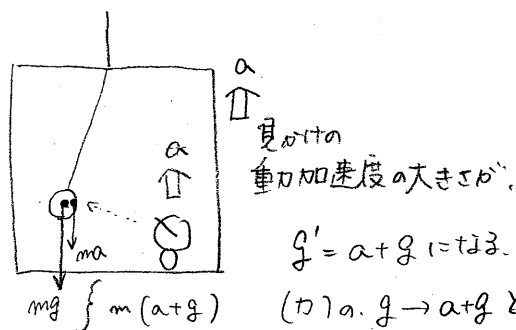 a
見かけの
a
動力加速度の大きさが、
ma
g' = a+g になる.
mg } m(a+g)
(カ)の. g → a+g と